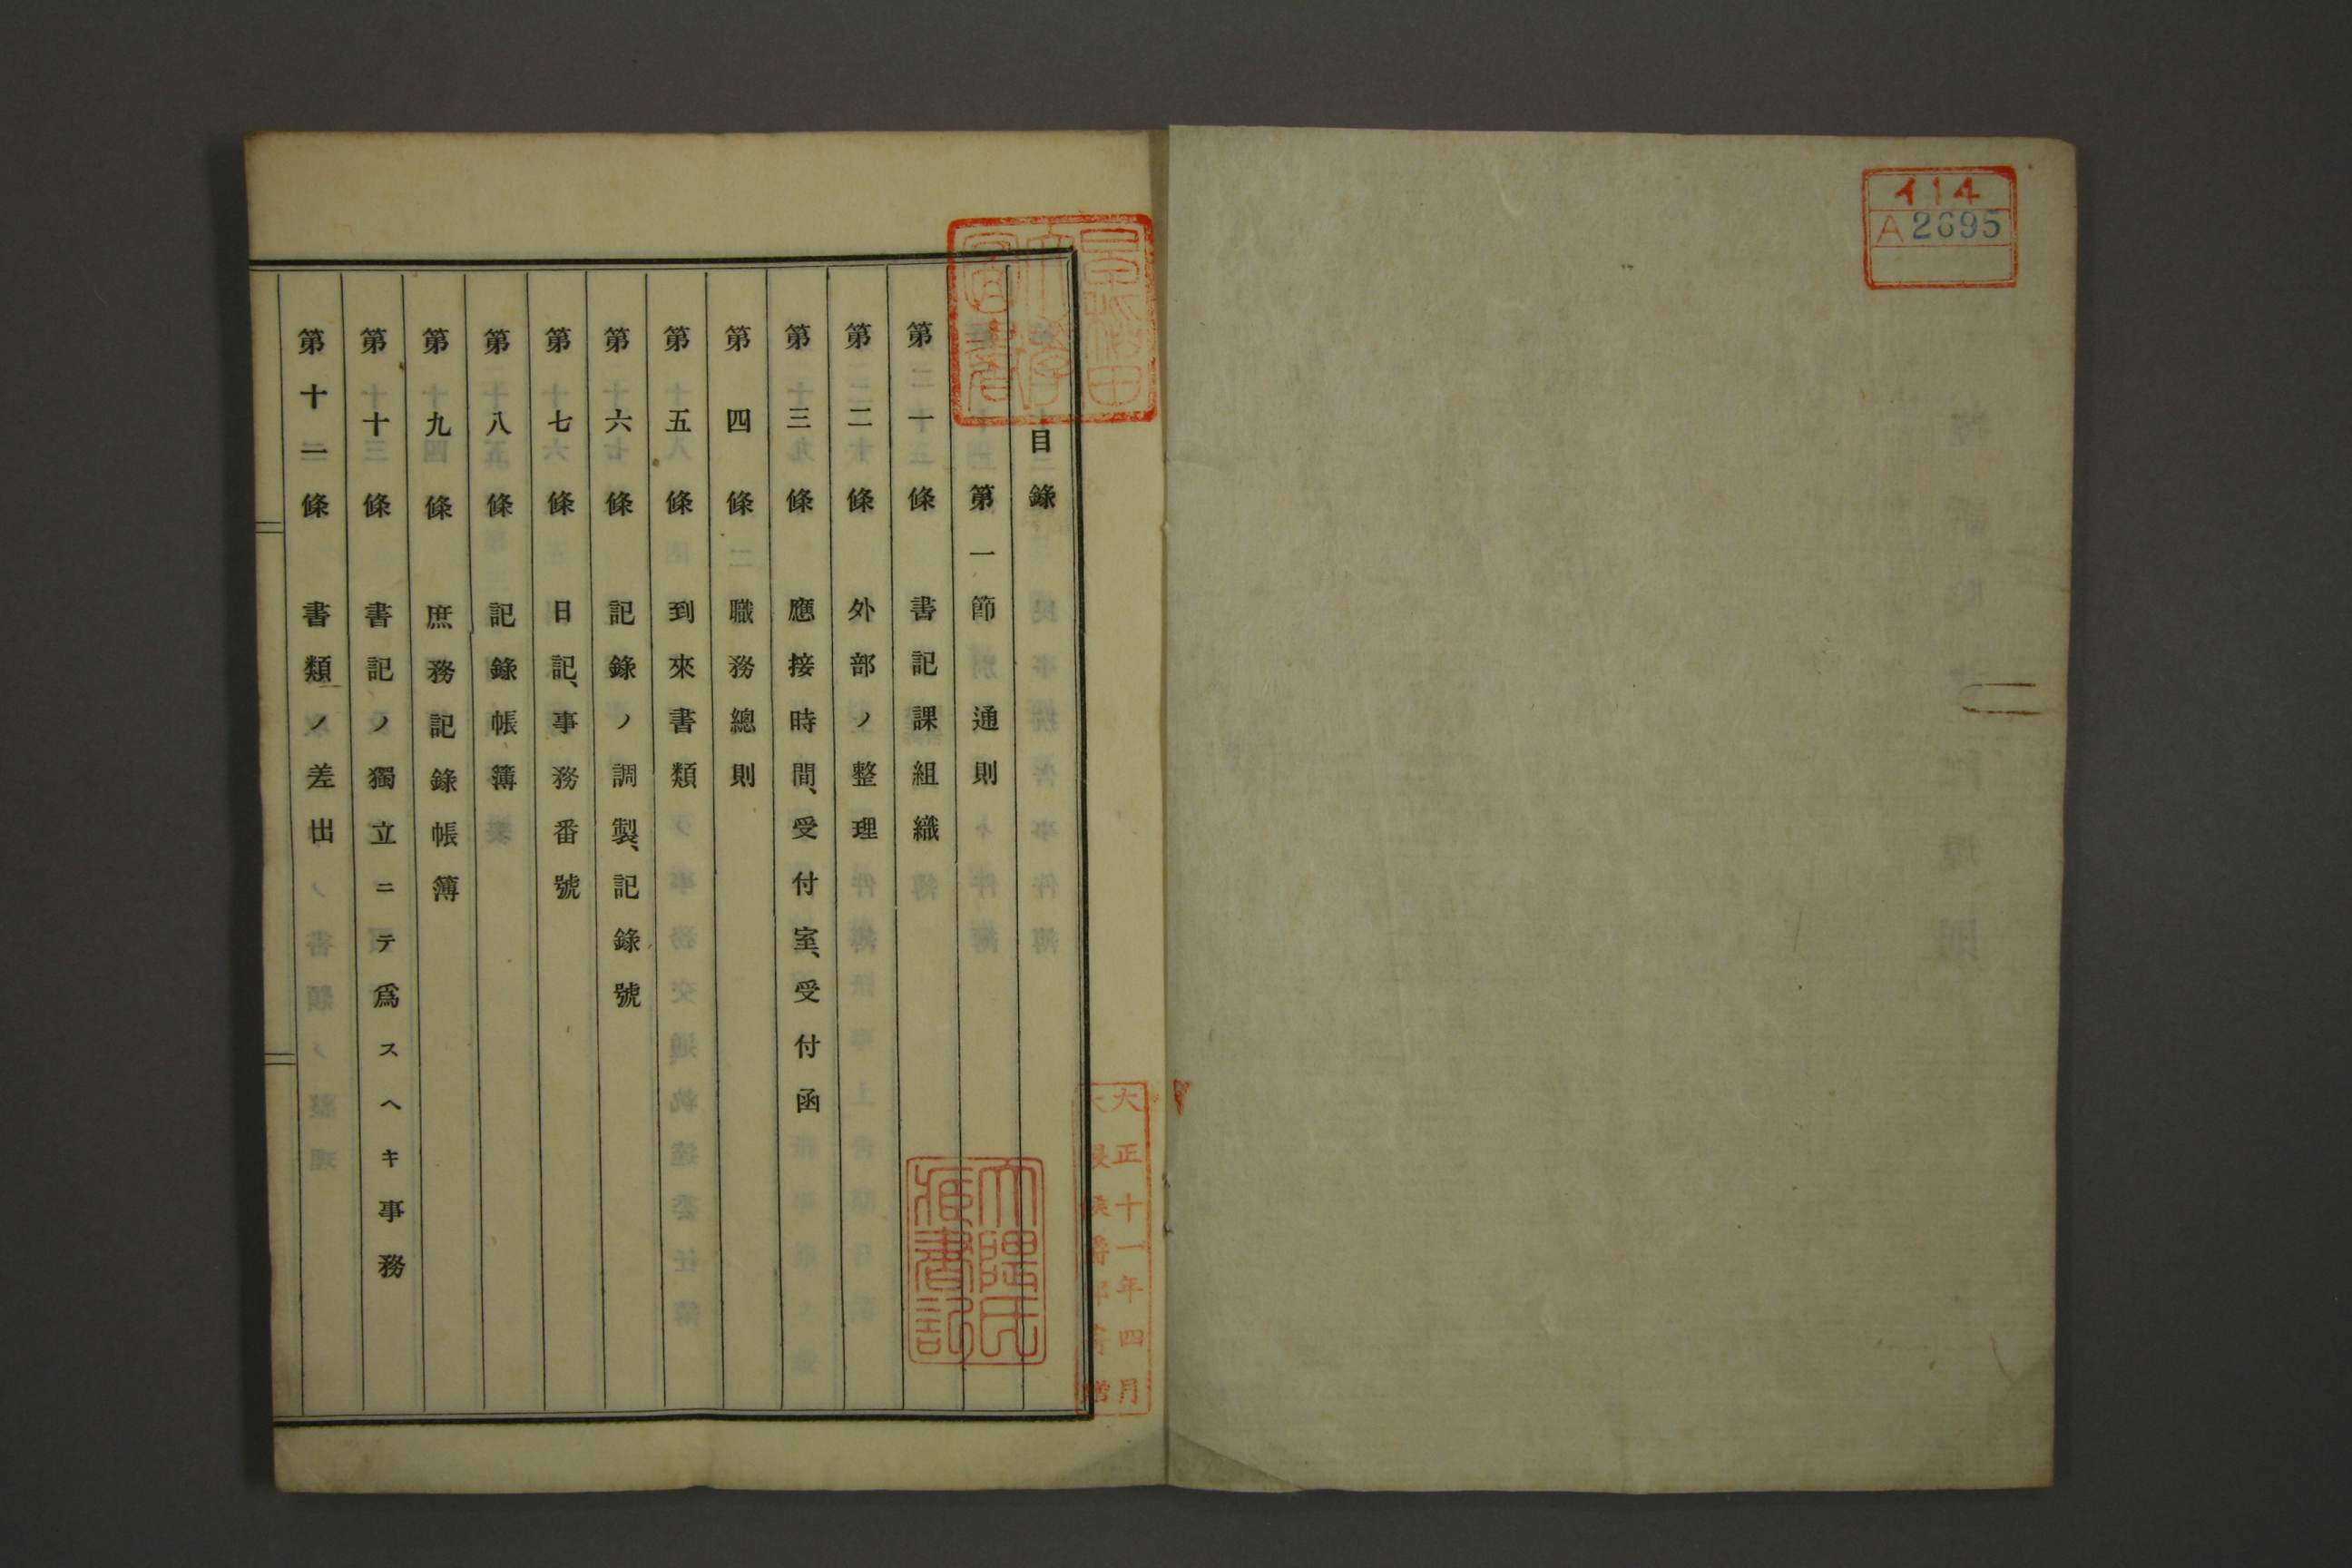 イ14
A2695
早稻田大學圖書
目錄
第一節 通則
第一條 書記課組織
第二條 外部ノ整理
第三條 應接時間、受付室、受付函
第四條 職務總則
第五條 到來書類
第六條 記錄ノ調製、記錄號
第七條 日記、事務番號
第八條 記錄帳簿
第九條 庶務記錄帳簿
第十條 書記ノ獨立ニテ爲スヘキ事務
第十一條 書類ノ差出
大隈氏藏書記
大正十一年四月
大隈侯爵邸寄贈